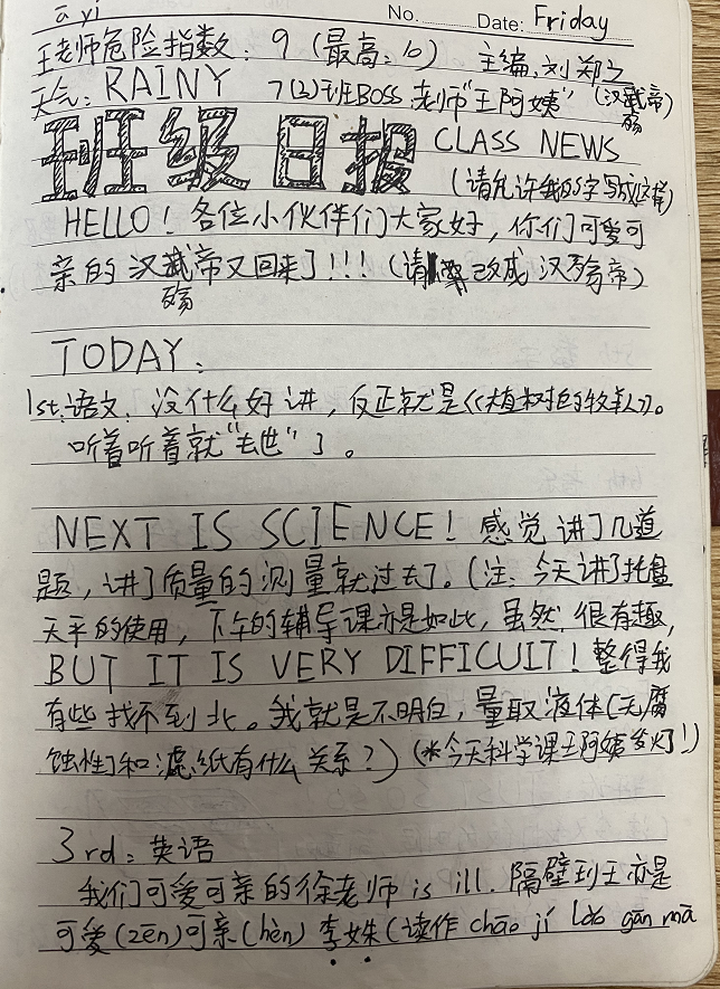 ā yí No. Date: Friday
王老师危险指数:9 (最高:10) 主编:刘郑之
天气:RAINY 7(2)班BOSS 老师"王阿姨" (汉武帝)
殇
班级日报 CLASS NEWS
(请允许我的字写成这样)
HELLO!各位小伙伴们大家好,你们可爱可
亲的汉武帝又回来了!!!(请 改成汉殇帝)
殇
TODAY:
1st:语文:没什么好讲,反正就是《植树的牧羊人》。
听着听着就"去世"了。
NEXT IS SCIENCE!感觉讲了几道
题,讲了质量的测量就过去了。(注:今天讲了托盘
天平的使用,下午的辅导课亦是如此,虽然很有趣,
BUT IT IS VERY DIFFICUIT!整得我
有些找不到北。我就是不明白,量取液体(无腐
蚀性)和滤纸有什么关系?)(*今天科学课王阿姨发火了!)
3rd:英语
我们可爱可亲的徐老师 is ill. 隔壁到王亦是
可爱(zēn)可亲(hèn)李姝(读作 chāo jí lǎo gān mā